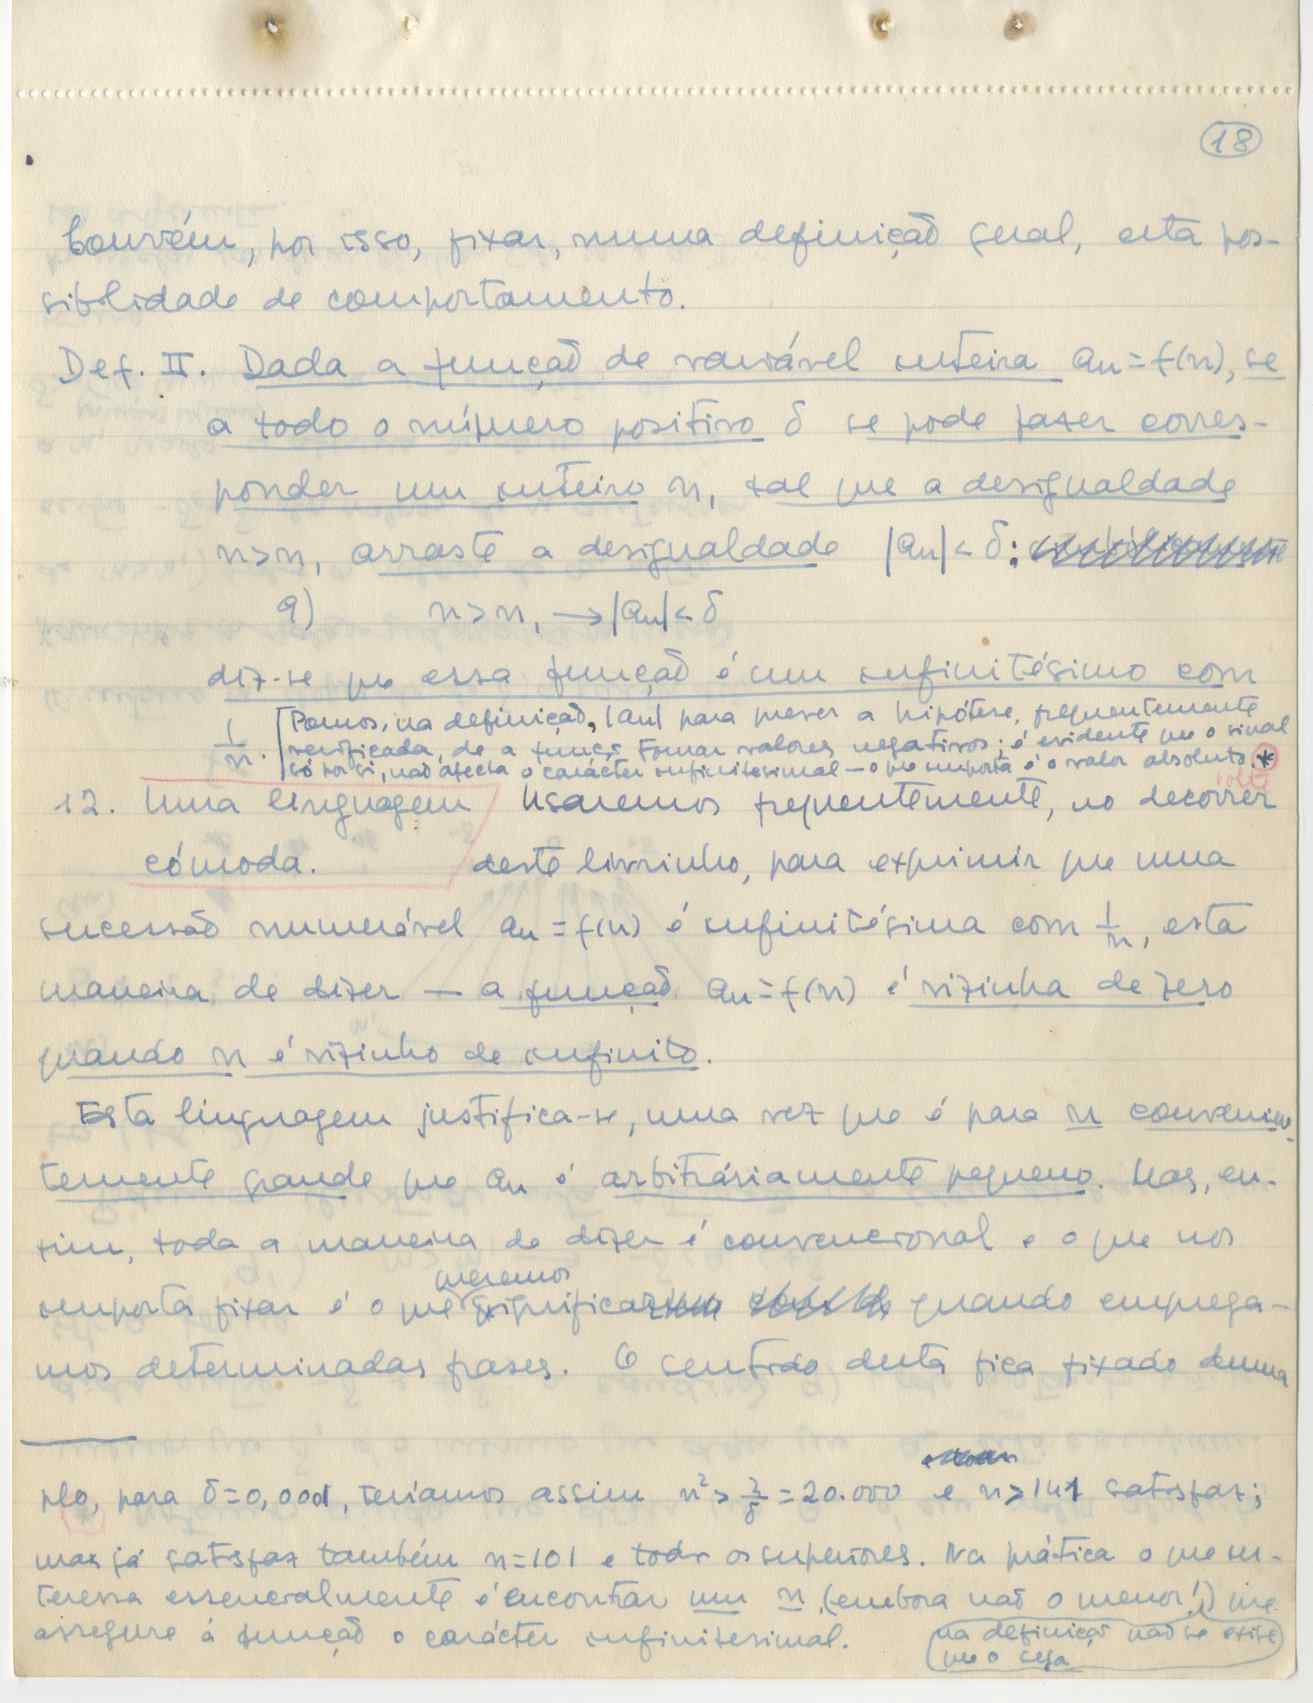 18
Convém, por isso, fixar, numa definição geral, esta pos-
sibilidade de comportamento.
Def. II. Dada a função de variável inteira an = f(n), se
a todo o número positivo δ se pode fazer corres-
ponder um inteiro n₁ tal que a desigualdade
n>n₁ arraste a desigualdade |an|<δ:
9) n>n₁ → |an|<δ
diz-se que essa função é um infinitésimo com
1/n. [Pomos, na definição, |an| para prever a hipótese, frequentemente
verificada, de a funç. tomar valores negativos; é evidente que o sinal
só por si, não afecta o carácter infinitesimal — o que importa é o valor absoluto *
volte
12. Uma linguagem Usaremos frequentemente, no decorrer
cómoda. deste livrinho, para exprimir que uma
sucessão numerável an = f(n) é infinitésima com 1/n, esta
maneira de dizer — a função an = f(n) é vizinha de zero
quando n é vizinho de infinito.
Esta linguagem justifica-se, uma vez que é para n convenien-
temente grande que an é arbitráriamente pequeno. Mas, en-
fim, toda a maneira de dizer é convencional e o que nos
queremos
importa fixar é o que significar quando emprega-
mos determinadas frases. O sentido desta fica fixado duma
plo, para δ=0,0001, teríamos assim n² > 2/δ = 20.000 e n>141 satisfaz;
mas já satisfaz também n=101 e todos os superiores. Na prática o que in-
teressa essencialmente é encontrar um n₁ (embora não o menor!) que
assegure à função o carácter infinitesimal.
na definição não se exige
que o seja